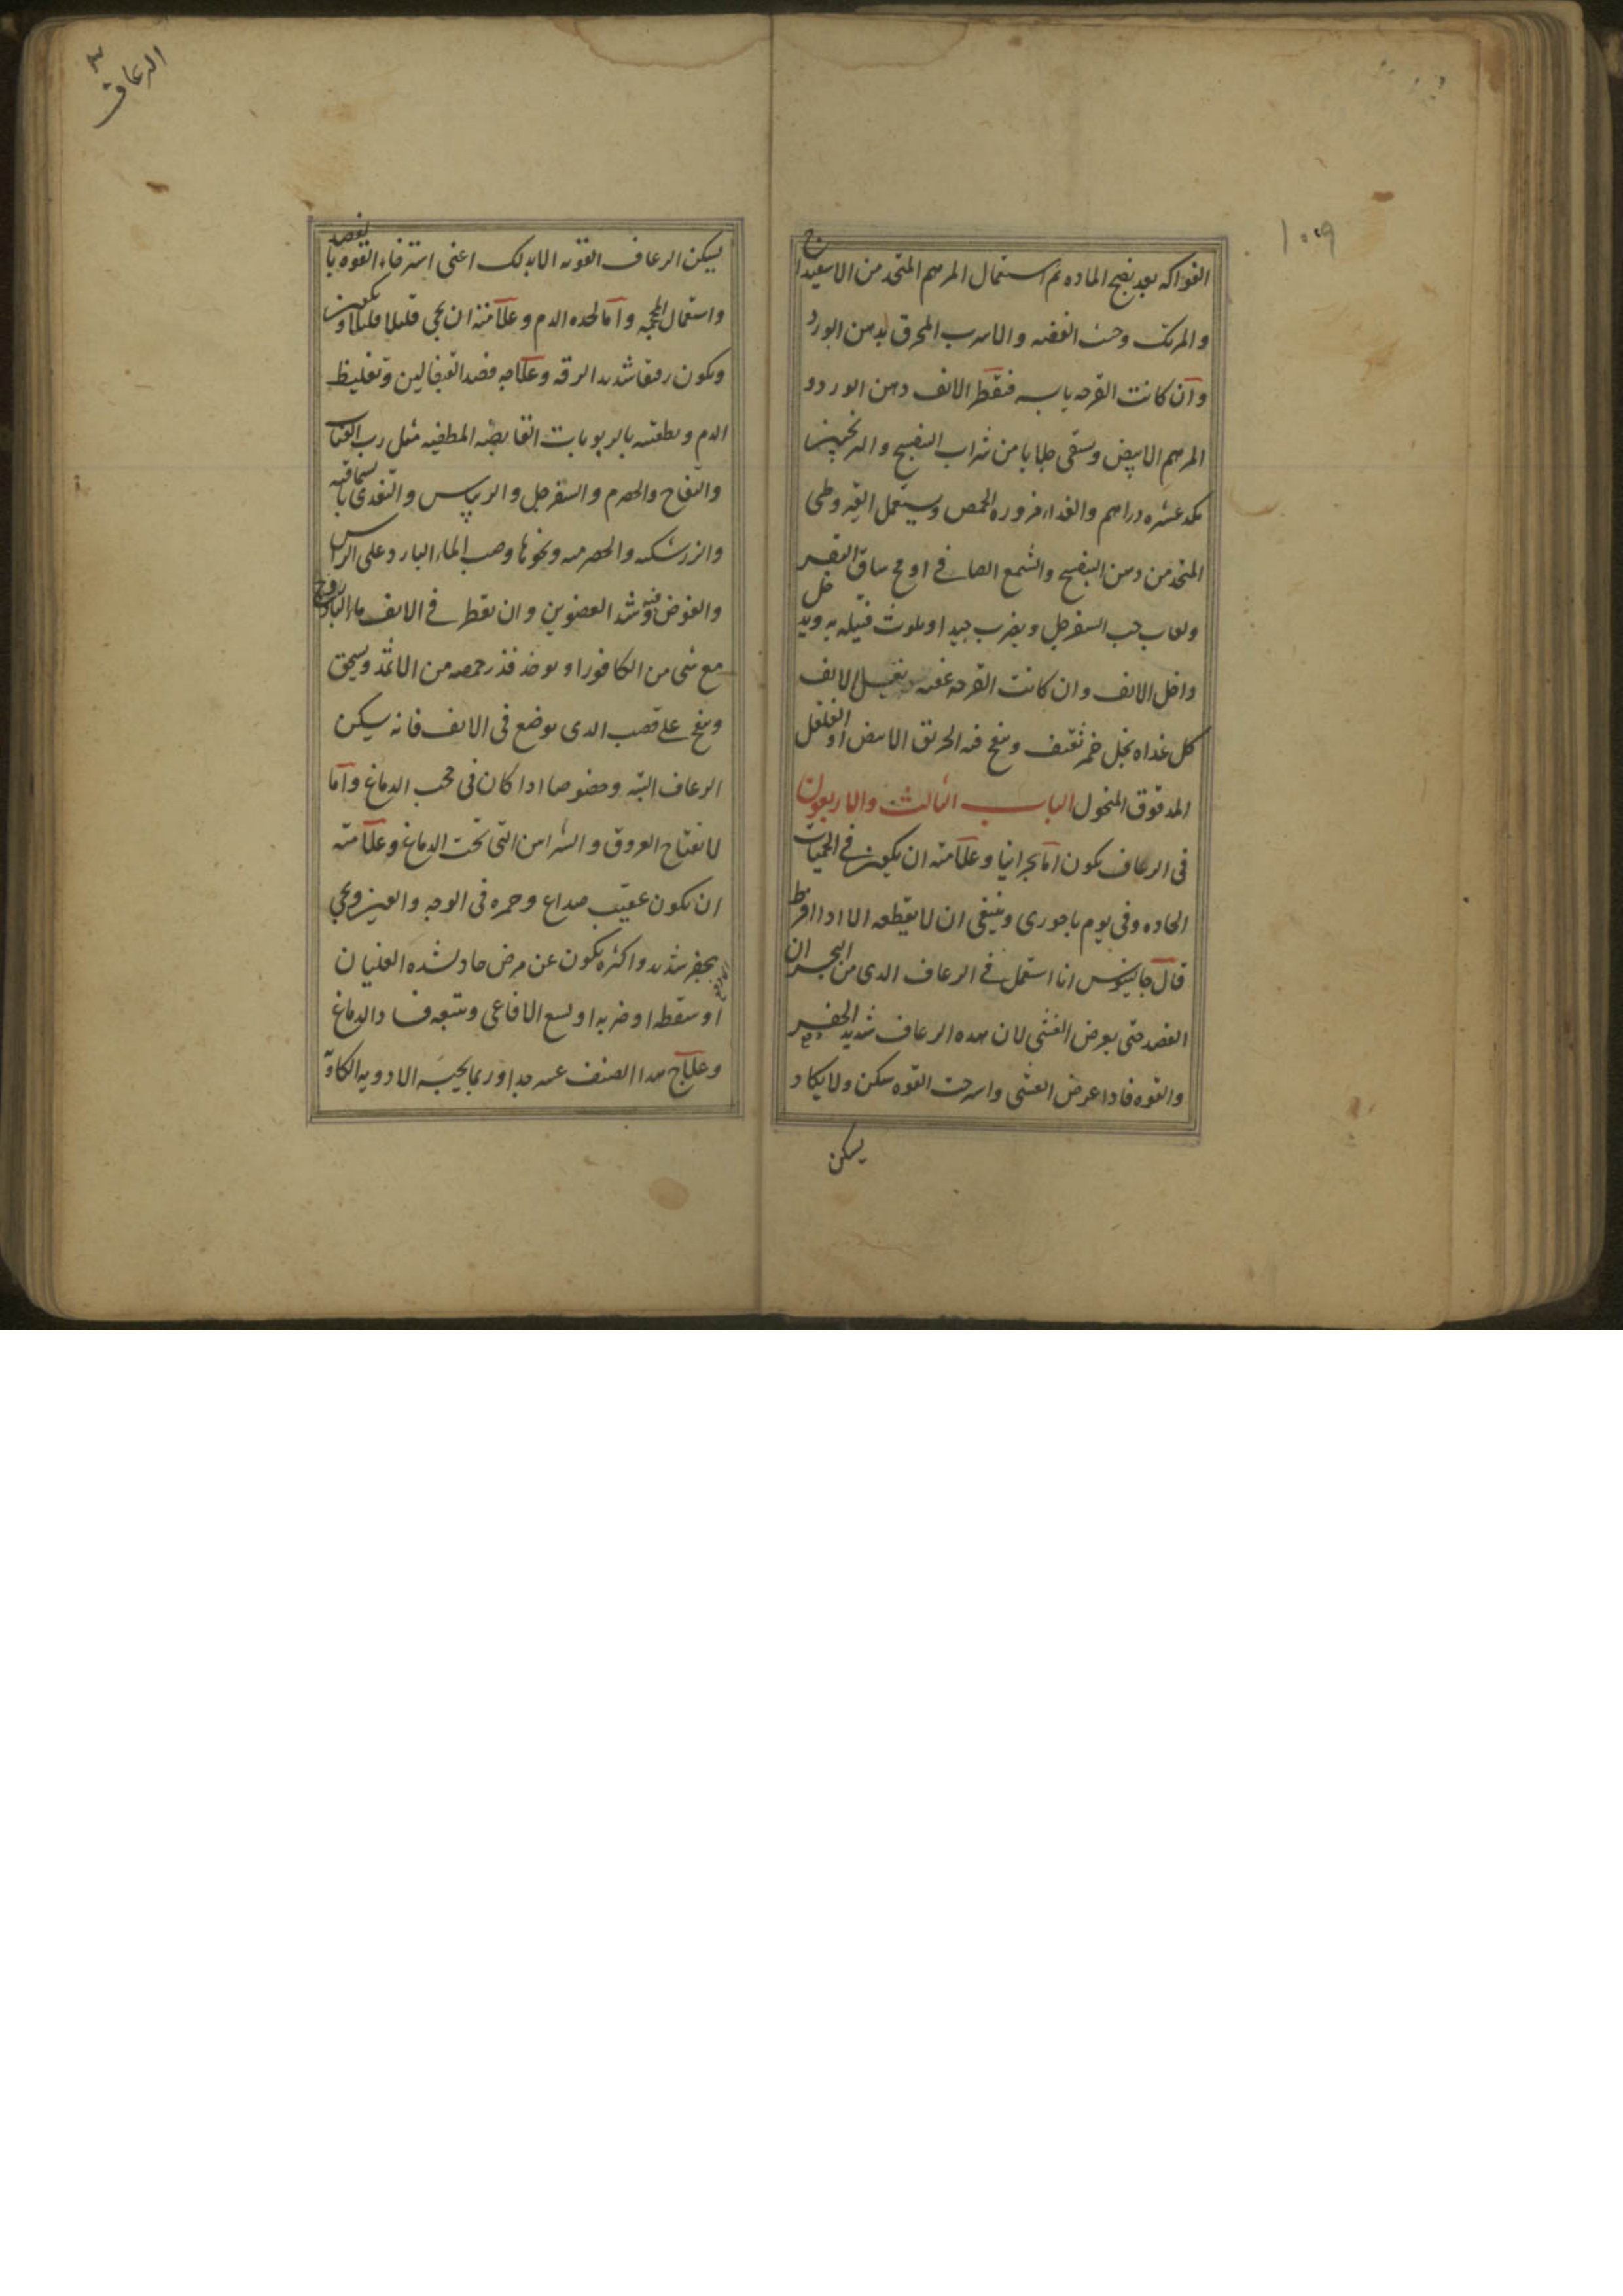 ١٠٠٩
الفواكه بعد نضج الماده ثم استعمال المرهم المتخذ من الاسفيداج
والمرتك وخبث الفضه والاسرب المحرق بدهن الورد
وان كانت القرحه يابسه فيقطر الانف دهن الورد و
المرهم الابيض ويسقى جلابا من شراب البنفسج والترنجبين
مكد عشره دراهم والغداء مزوره الحمص ويستعمل القيروطى
المتخذ من دهن البنفسج والشمع الصافي او مخ ساق البقر
ولعاب حب السفرجل ويضرب جيدا ويلوث فتيله به ويدخل
داخل الانف وان كانت القرحه عفنه يغسل الانف
كل غداه بخل خمر ثقيف وينفخ فيه الخربق الابيض او الفلفل
المدقوق المنخول الباب الثالث والاربعون
فى الرعاف يكون اما بحرانيا وعلامته ان يكون في الحميات
الحاده وفى يوم باحورى وينبغى ان لا يقطعه الا ادا افرط
قال جالينوس انا استعمل في الرعاف الدى من البحران
الفصد حتى يعرض الغشى لان هده الرعاف شديد الحفر
والقوه فادا عرض الغشى واسرخت القوه سكن ولا يكاد
يسكن
الرعاف
يسكن الرعاف القويه الا بدلك اعنى استرخاء القوه بالفصد
واستعمال المحجمه واما لحده الدم وعلامته ان يجى قليلا قليلا ويكون
ويكون رقيقا شديد الرقه وعلاجه فصد القيفالين وتغليظ
الدم وتطفيته بالربوبات القابضه المطفيه مثل رب العناب
والتفاح والحصرم والسفرجل والريباس والتغدى بالسماقيه
والزرشكيه والحصرميه ونحوها وصب الماء البارد على الراس
والغوض فيه وشد العضوين وان يقطر في الانف ماء البادروج
مع شى من الكافور او يوخد قدر حمصه من الاثمد ويسحق
وينفخ على قصب الدى يوضع فى الانف فانه يسكن
الرعاف البته وخصوصا ادا كان فى حجب الدماغ واما
لانفتاح العروق والشرايين التى تحت الدماغ وعلامته
ان يكون عقيب صداع وحمره فى الوجه والعين ويجى
بحفر شديد واكثره يكون عن مرض حاد لشده الغليان
او سقطه او ضربه او لسع الافاعى ويتبعه فساد الدماغ
وعلاج هدا الصنف عسر جدا وربما يجيبه الادويه الكاويه